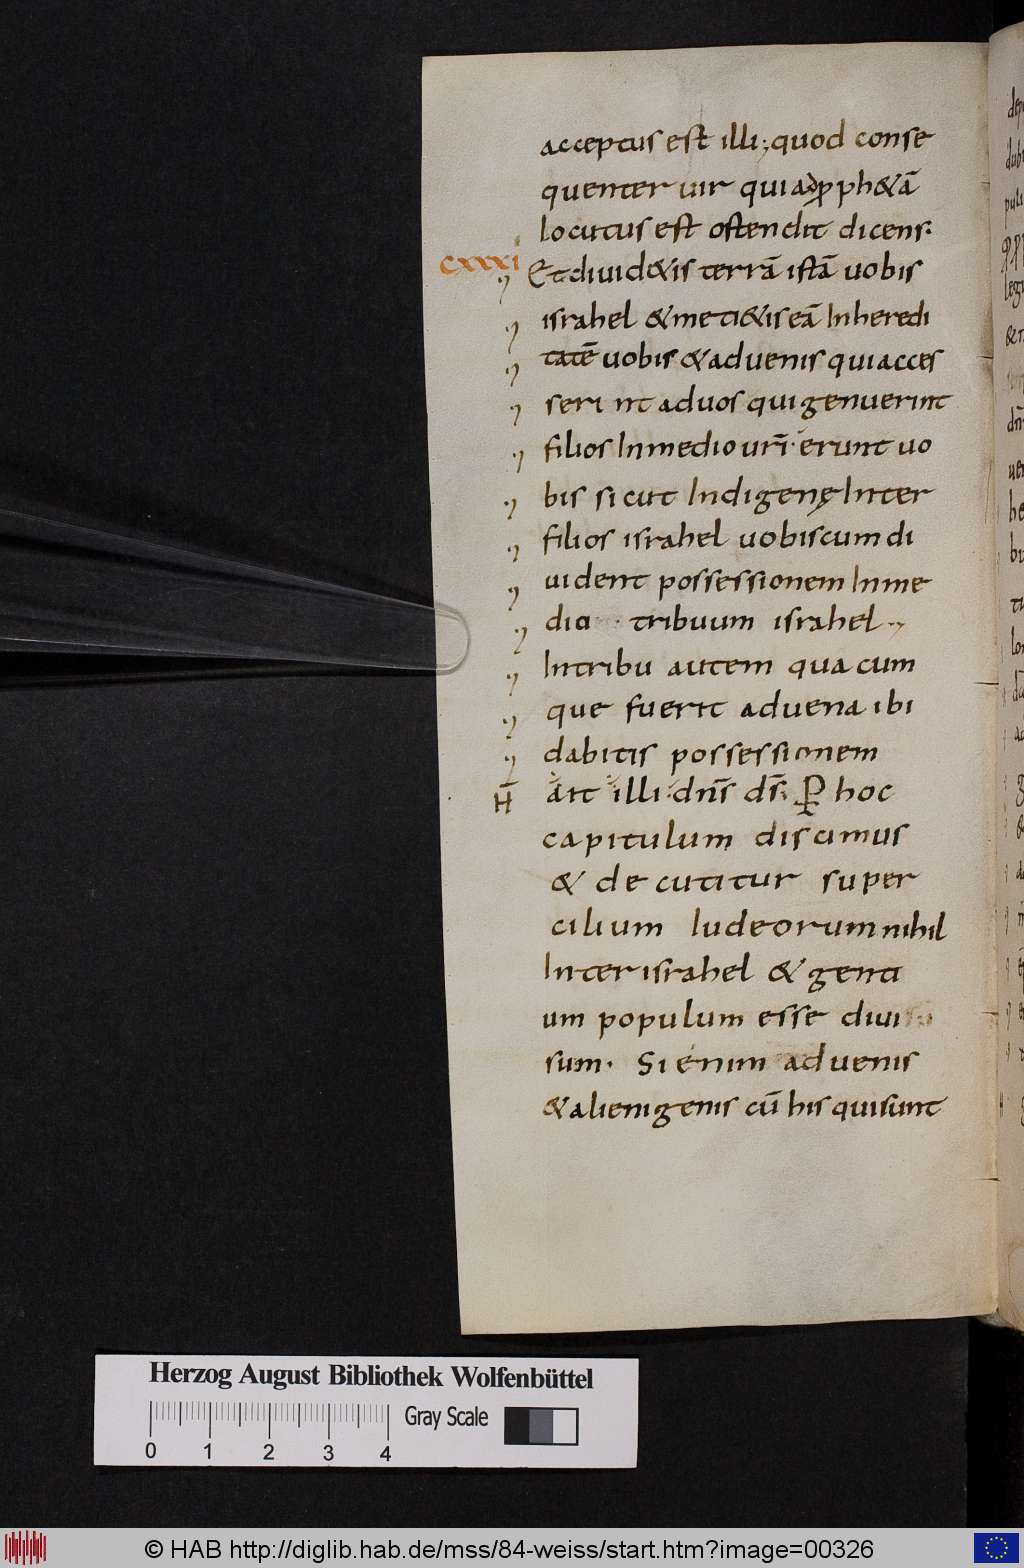 acceptus est illi; quod conse
quenter uir qui ad ꝓph&ā
locutus est ostendit dicens.
cxxxi Et diuid&is terrā istā uobis
israhel & meti&is eā In heredi
tatē uobis & aduenis qui acces
serint ad uos qui genuerint
filios In medio urī· erunt uo
bis sicut Indigenę Inter
filios israhel uobiscum di
uident possessionem In me
dio tribuum israhel
In tribu autem qua cum
que fuerit aduena ibi
dabitis possessionem
H̄ ait illi· dn̄s ds̄; P hoc
capitulum discimus
& decutitur super
cilium Iudeorum nihil
Inter israhel & genti
um populum esse diui
sum· Si enim aduenis
& alienigenis cū his qui sunt
Herzog August Bibliothek Wolfenbüttel
Gray Scale
0 1 2 3 4
© HAB http://diglib.hab.de/mss/84-weiss/start.htm?image=00326